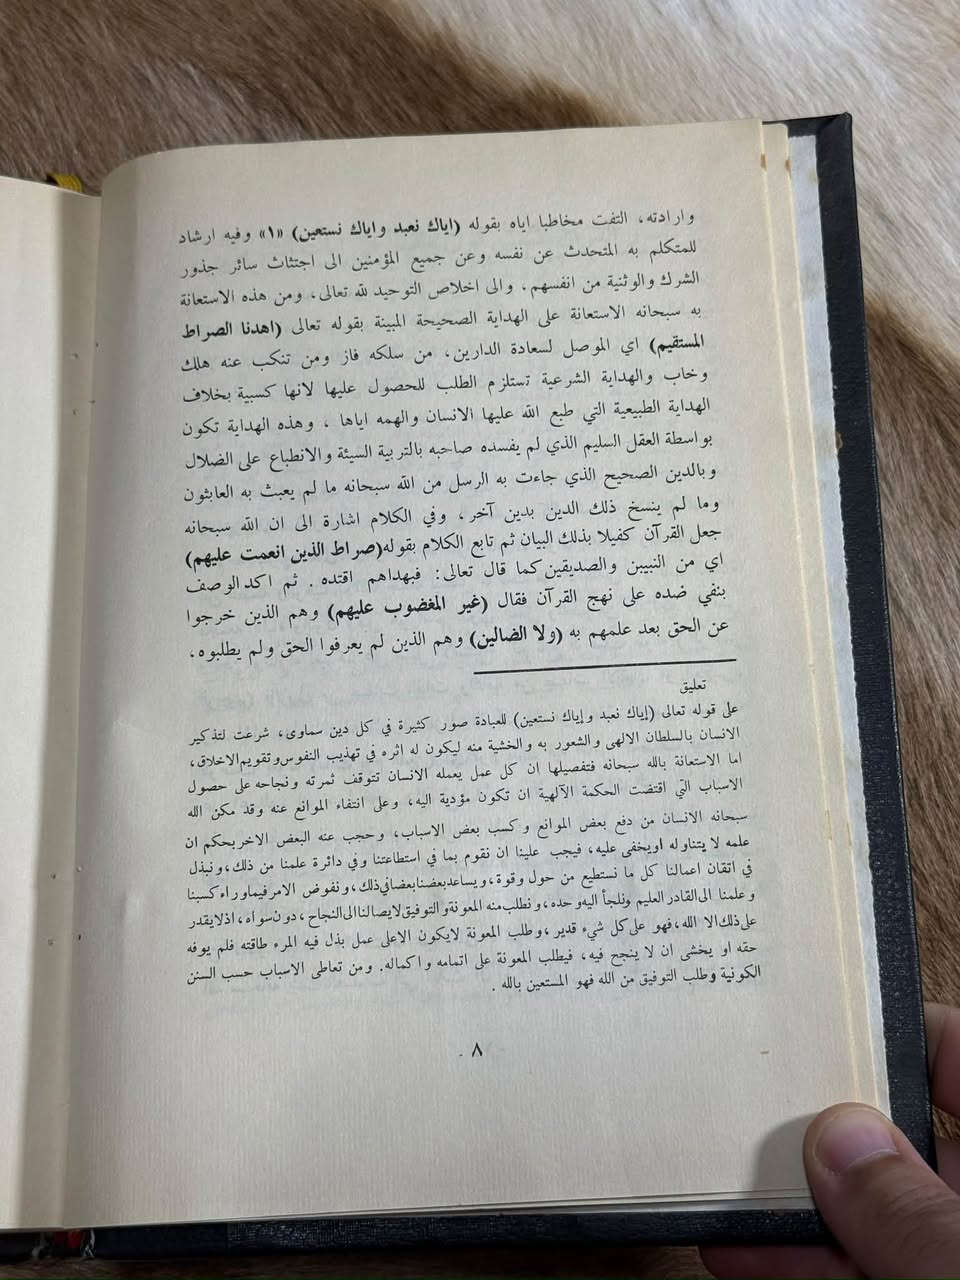 وارادته، التفت مخاطبا اياه بقوله (اياك نعبد واياك نستعين) «١» وفيه ارشاد
للمتكلم به المتحدث عن نفسه وعن جميع المؤمنين الى اجتثاث سائر جذور
الشرك والوثنية من انفسهم. والى اخلاص التوحيد لله تعالى، ومن هذه الاستعانة
به سبحانه الاستعانة على الهداية الصحيحة المبينة بقوله تعالى (اهدنا الصراط
المستقيم) اي الموصل لسعادة الدارين، من سلكه فاز ومن تنكب عنه هلك
وخاب والهداية الشرعية تستلزم الطلب للحصول عليها لانها كسبية بخلاف
الهداية الطبيعية التي طبع الله عليها الانسان والهمه اياها ، وهذه الهداية تكون
بواسطة العقل السليم الذي لم يفسده صاحبه بالتربية السيئة والانطباع على الضلال
وبالدين الصحيح الذي جاءت به الرسل من الله سبحانه ما لم يعبث به العابثون
وما لم ينسخ ذلك الدين بدين آخر، وفي الكلام اشارة الى ان الله سبحانه
جعل القرآن كفيلا بذلك البيان ثم تابع الكلام بقوله(صراط الذين انعمت عليهم)
اي من النبيين والصديقين كما قال تعالى: فبهداهم اقتده . ثم اكد الوصف
بنفي ضده على نهج القرآن فقال (غير المغضوب عليهم) وهم الذين خرجوا
عن الحق بعد علمهم به (ولا الضالين) وهم الذين لم يعرفوا الحق ولم يطلبوه.
تعليق
على قوله تعالى (إياك نعبد وإياك نستعين) للعبادة صور كثيرة في كل دين سماوى، شرعت لتذكير
الانسان بالسلطان الالهى والشعور به والخشية منه ليكون له اثره في تهذيب النفوس وتقويم الاخلاق،
اما الاستعانة بالله سبحانه فتفصيلها ان كل عمل يعمله الانسان تتوقف ثمرته ونجاحه على حصول
الاسباب التي اقتضت الحكمة الآلهية ان تكون مؤدية اليه، وعلى انتفاء الموانع عنه وقد مكن الله
سبحانه الانسان من دفع بعض الموانع وكسب بعض الاسباب، وحجب عنه البعض الاخر بحكم ان
علمه لا يتناوله اويخفى عليه، فيجب علينا ان نقوم بما في استطاعتنا وفي دائرة علمنا من ذلك، ونبذل
في اتقان اعمالنا كل ما نستطيع من حول وقوة، ويساعد بعضنا بعضا في ذلك، ونفوض الامر فيما وراء كسبنا
وعلمنا الى القادر العليم ونلجأ اليه وحده، ونطلب منه المعونة والتوفيق لايصالنا الى النجاح، دون سواه، اذ لا يقدر
على ذلك الا الله، فهو على كل شيء قدير، وطلب المعونة لايكون الاعلى عمل بذل فيه المرء طاقته فلم يوفه
حقه او يخشى ان لا ينجح فيه، فيطلب المعونة على اتمامه واكماله. ومن تعاطى الاسباب حسب السنن
الكونية وطلب التوفيق من الله فهو المستعين بالله .
٨